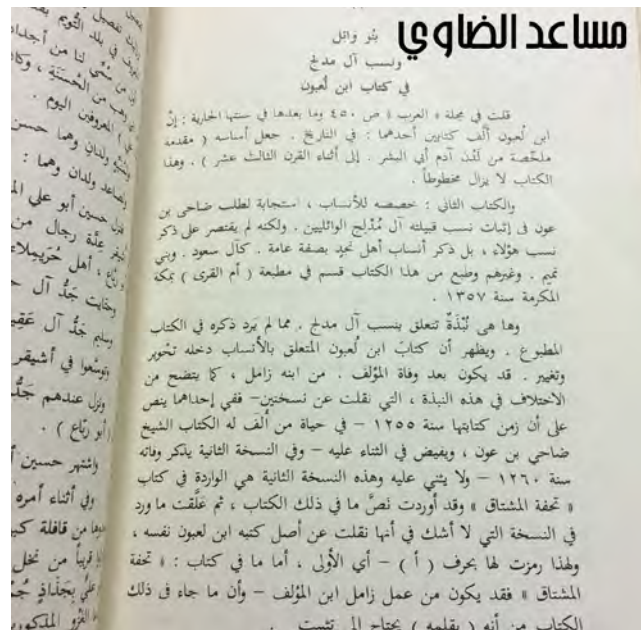 مساعد الضاوي
بنو وائل
ونسب آل مدلج
في كتاب ابن لعبون
قلت في مجلة « العرب » ص ٤٥٠ وما بعدها في سنتها الجارية : إنّ
ابن لعبون ألف كتابين أحدهما : في التاريخ . جعل أساسه ( مقدمة
ملخّصة من لَدُن آدم أبي البشر . إلى أثناء القرن الثالث عشر ) . وهذا
الكتاب لا يزال مخطوطاً .
والكتاب الثاني : خصصه للأنساب ، استجابة لطلب ضاحى بن
عون فى إثبات نسب قبيلته آل مُدْلِج الوائليين . ولكنه لم يقتصر على ذكر
نسب هؤلاء ، بل ذكر أنساب أهل نجد بصفة عامة . كآل سعود . وبني
تميم . وغيرهم وطبع من هذا الكتاب قسم في مطبعة ( أم القرى ) بمكة
المكرمة سنة ١٣٥٧ .
وها هى نُبْذَةٌ تتعلق بنسب آل مدلج . مما لم يَرد ذكره في الكتاب
المطبوع . ويظهر أن كتابَ ابن لُعبون المتعلق بالأنساب دخله تحْوير
وتغيير . قد يكون بعد وفاة المؤلف . من ابنه زامل ، كما يتضح من
الاختلاف في هذه النبذة ، التي نقلت عن نسختين – ففي إحداهما ينص
على أن زمن كتابتها سنة ١٢٥٥ – في حياة من أَلَّفَ له الكتاب الشيخ
ضاحي بن عون ، ويفيض في الثناء عليه – وفي النسخة الثانية يذكر وفاته
سنة ١٢٦٠ – ولا يثني عليه وهذه النسخة الثانية هي الواردة في كتاب
« تحفة المشتاق » وقد أوردت نَصَّ ما في ذلك الكتاب ، ثم عَلَّقت ما ورد
في النسخة التي لا أشك في أنها نقلت عن أصل كتبه ابن لعبون نفسه ،
ولهذا رمزت لها بحرف ( أ ) – أي الأولى . أما ما في كتاب : « تحفة
المشتاق » فقد يكون من عمل زامل ابن المؤلف – وأن ما جاء فى ذلك
الكتاب من أنه ( بقلمه ) يحتاج إلى تثبت .
في بلد التُّويم
لنا من أجداد
من الحُسَنَة ، وكان
المعروفين اليوم .
ولدان وهما حسن
ولدان وهما :
حسين أبو علي
عدّة رجال من
، أهل حُرَيملاء
جَدُّ آل
جَدُّ آل عَقِيـ
وتوسّعوا في أشيقر
ونزل عندهم جَدُّ
( أبو ربّاع ) .
واشتهر حسين
وفي أثناء أمره
من قافلة كبـ
قريباً من نخل
المذكور